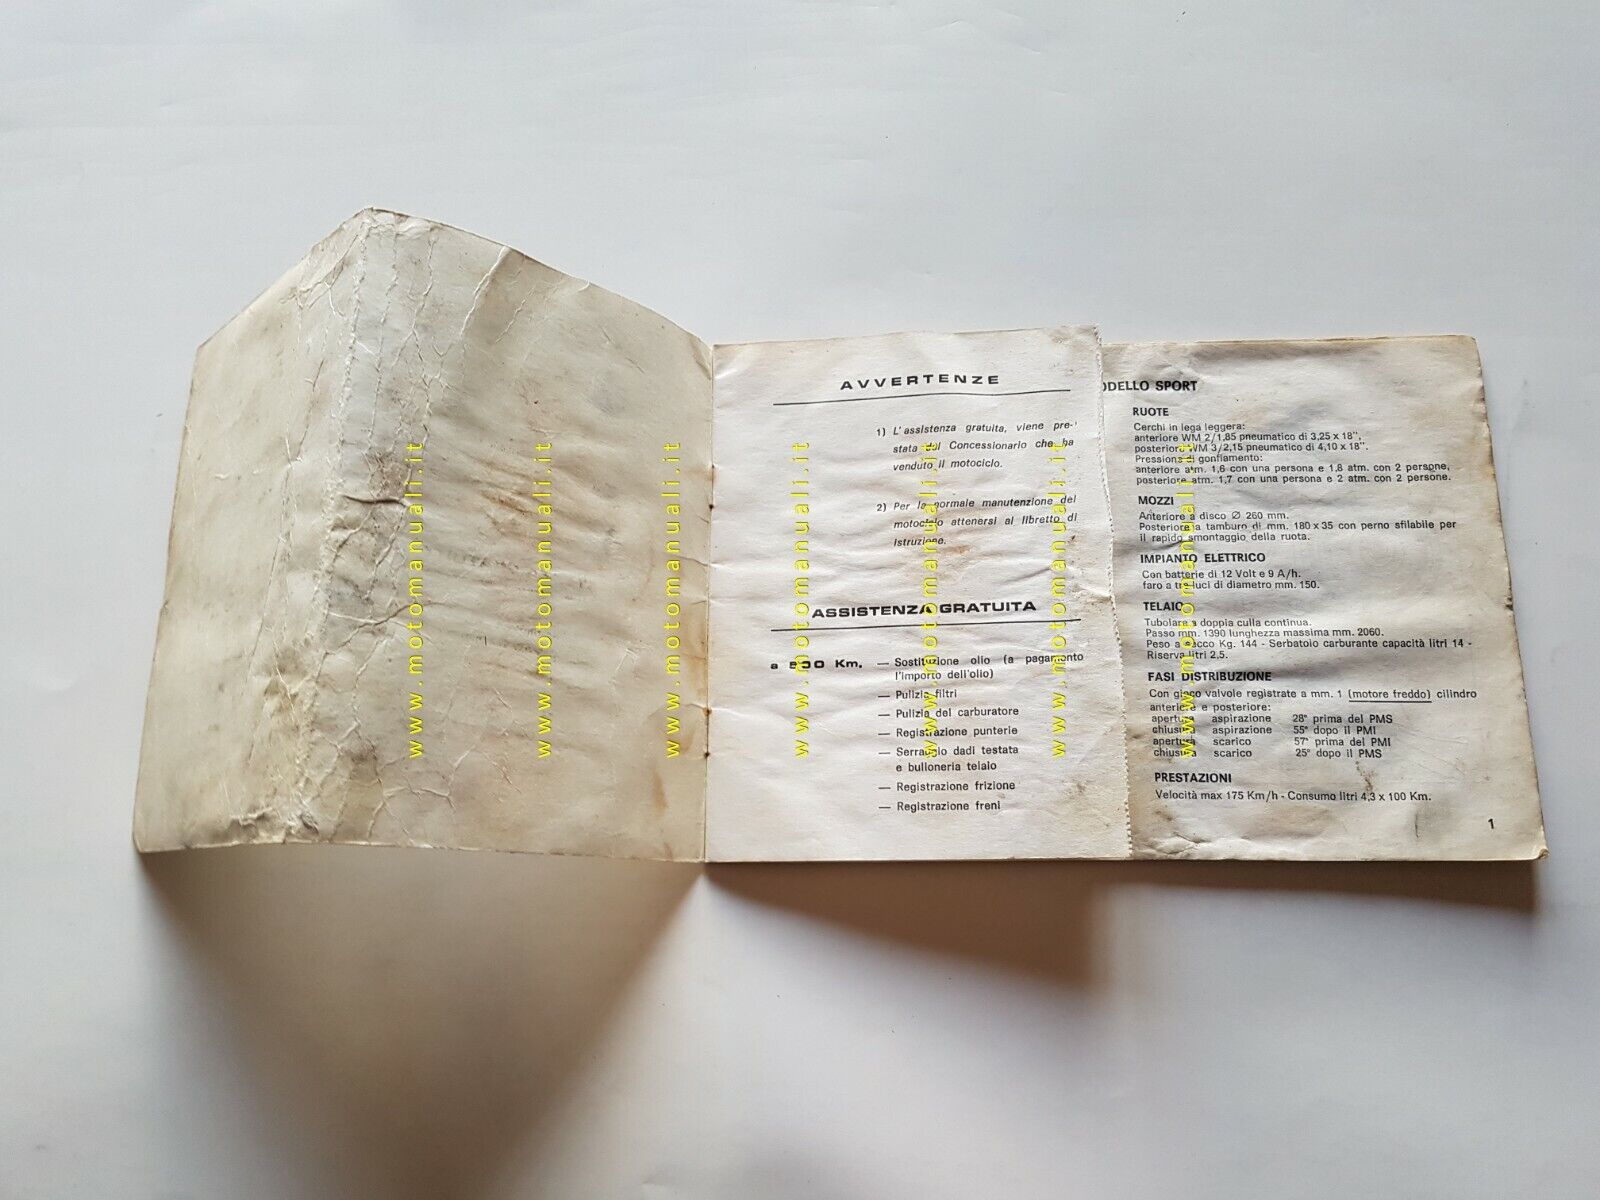 AVVERTENZE
1) L'assistenza gratuita, viene pre-
stata dal Concessionario che ha
venduto il motociclo.
2) Per la normale manutenzione del
motociclo attenersi al libretto di
istruzione.
ASSISTENZA GRATUITA
a 800 Km. — Sostituzione olio (a pagamento
l'importo dell'olio)
— Pulizia filtri
— Pulizia del carburatore
— Registrazione punterie
— Serraggio dadi testata
e bulloneria telaio
— Registrazione frizione
— Registrazione freni
ODELLO SPORT
RUOTE
Cerchi in lega leggera:
anteriore WM 2/1,85 pneumatico di 3,25 x 18",
posteriore WM 3/2,15 pneumatico di 4,10 x 18".
Pressione di gonfiamento:
anteriore atm. 1,6 con una persona e 1,8 atm. con 2 persone,
posteriore atm. 1,7 con una persona e 2 atm. con 2 persone.
MOZZI
Anteriore a disco Ø 260 mm.
Posteriore a tamburo di mm. 180 x 35 con perno sfilabile per
il rapido smontaggio della ruota.
IMPIANTO ELETTRICO
Con batterie di 12 Volt e 9 A/h.
faro a tre luci di diametro mm. 150.
TELAIO
Tubolare a doppia culla continua.
Passo mm. 1390 lunghezza massima mm. 2060.
Peso a secco Kg. 144 - Serbatoio carburante capacità litri 14 -
Riserva litri 2,5.
FASI DISTRIBUZIONE
Con gioco valvole registrate a mm. 1 (motore freddo) cilindro
anteriore e posteriore:
apertura aspirazione 28° prima del PMS
chiusura aspirazione 55° dopo il PMI
apertura scarico 57° prima del PMI
chiusura scarico 25° dopo il PMS
PRESTAZIONI
Velocità max 175 Km/h - Consumo litri 4,3 x 100 Km.
1
www.motomanuali.it
www.motomanuali.it
www.motomanuali.it
www.motomanuali.it
www.motomanuali.it
www.motomanuali.it
www.motomanuali.it